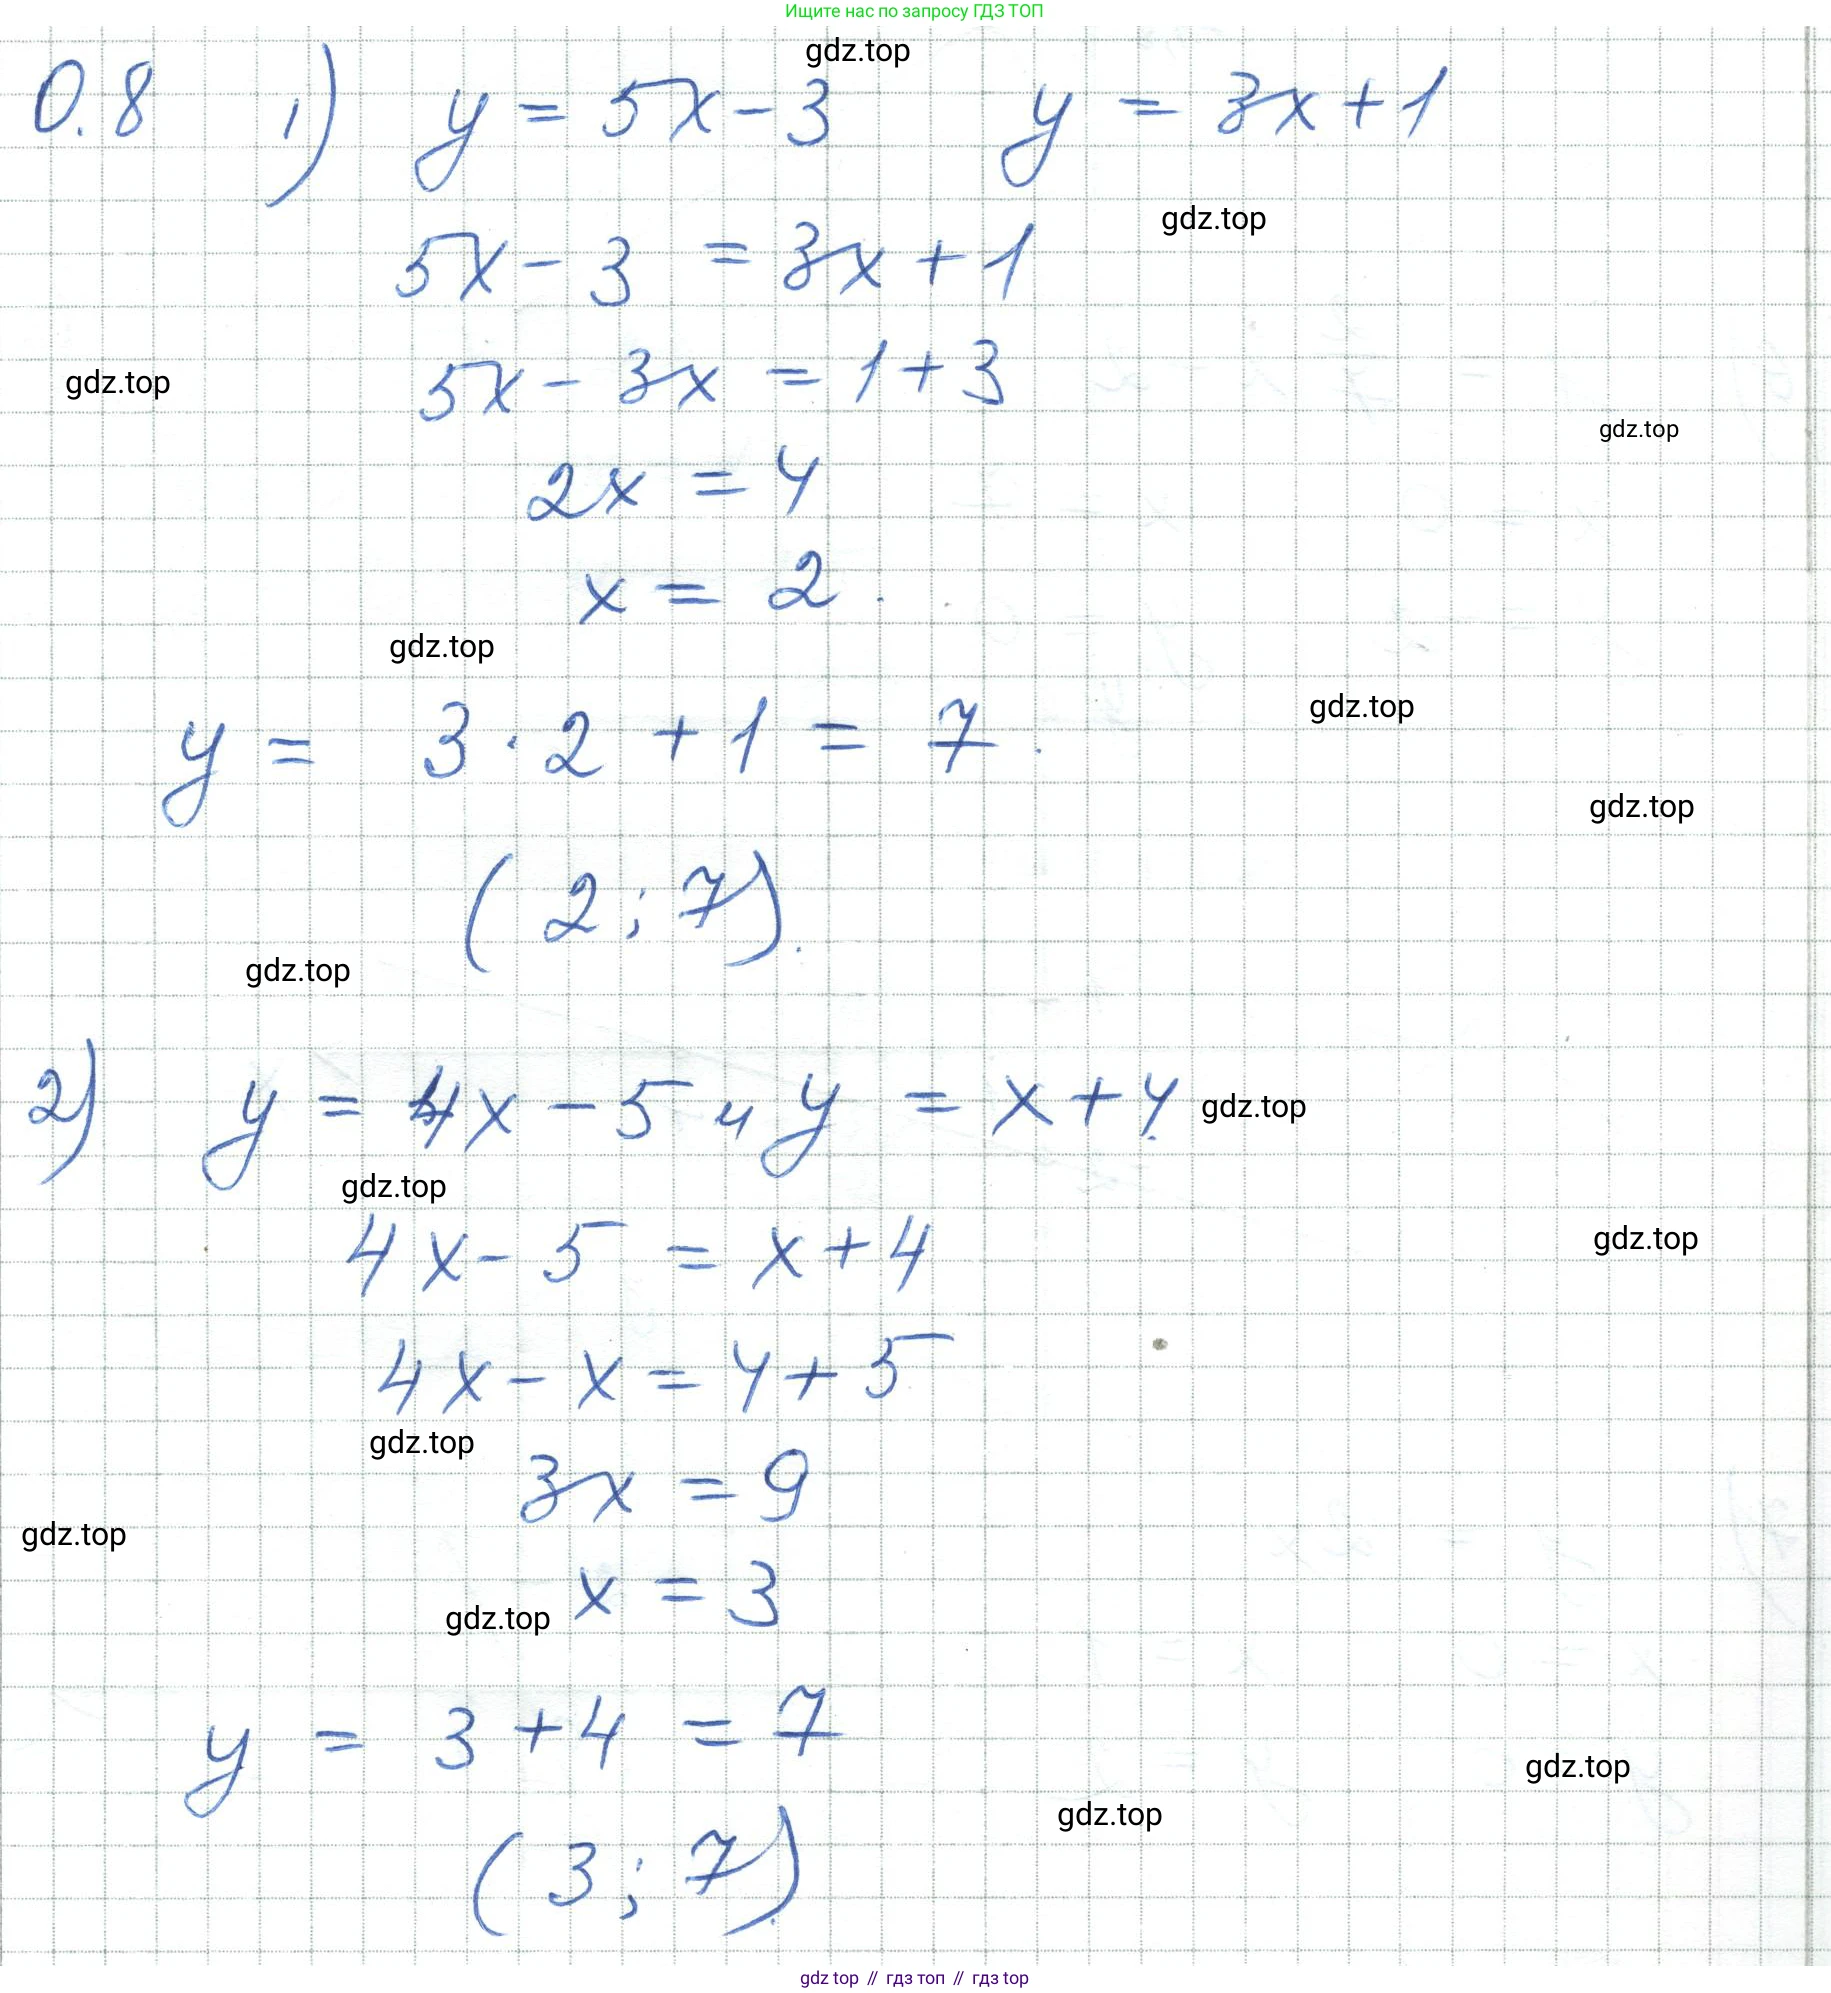 Ищите нас по запросу ГДЗ ТОП
gdz.top
0.8 1) y = 5x - 3 y = 3x + 1
gdz.top
5x - 3 = 3x + 1
gdz.top
5x - 3x = 1 + 3
gdz.top
2x = 4
x = 2.
gdz.top
gdz.top
y = 3 · 2 + 1 = 7.
gdz.top
(2; 7).
gdz.top
2) y = 4x - 5 и y = x + 4. gdz.top
gdz.top
4x - 5 = x + 4
gdz.top
4x - x = 4 + 5
gdz.top
3x = 9
gdz.top
x = 3
gdz.top
y = 3 + 4 = 7
gdz.top
gdz.top
(3; 7).
gdz top // гдз топ // гдз top